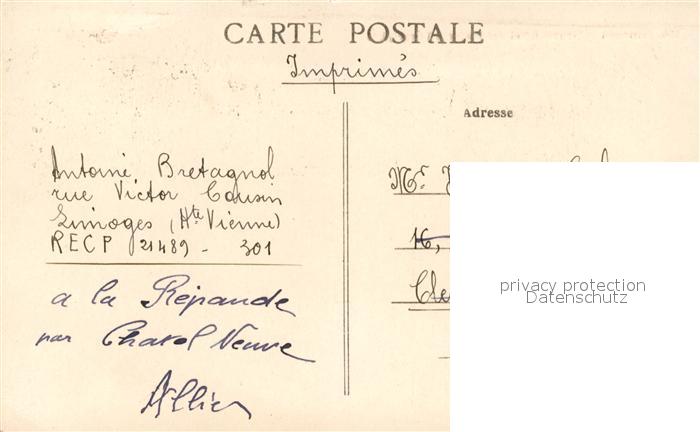 CARTE POSTALE
Imprimés
Adresse
Antoine Bretagnol
rue Victor Cousin
Limoges (Hte Vienne)
RECP 21489 - 301
Mr
16,
Cle
a la Répaude
par Chatel Neuvre
Allier
privacy protection
Datenschutz